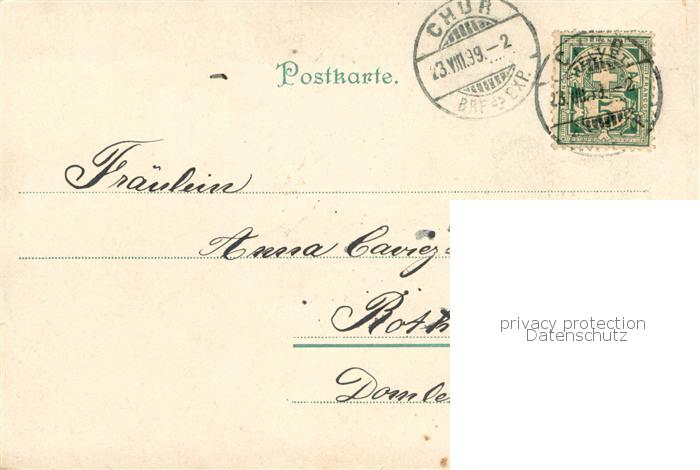 CHUR
23.VIII.99.-2
BRF. EXP.
CHUR
HELVETIA
5
Postkarte.
Fräulein
Anna Cavig
Roth
Domle
privacy protection
Datenschutz